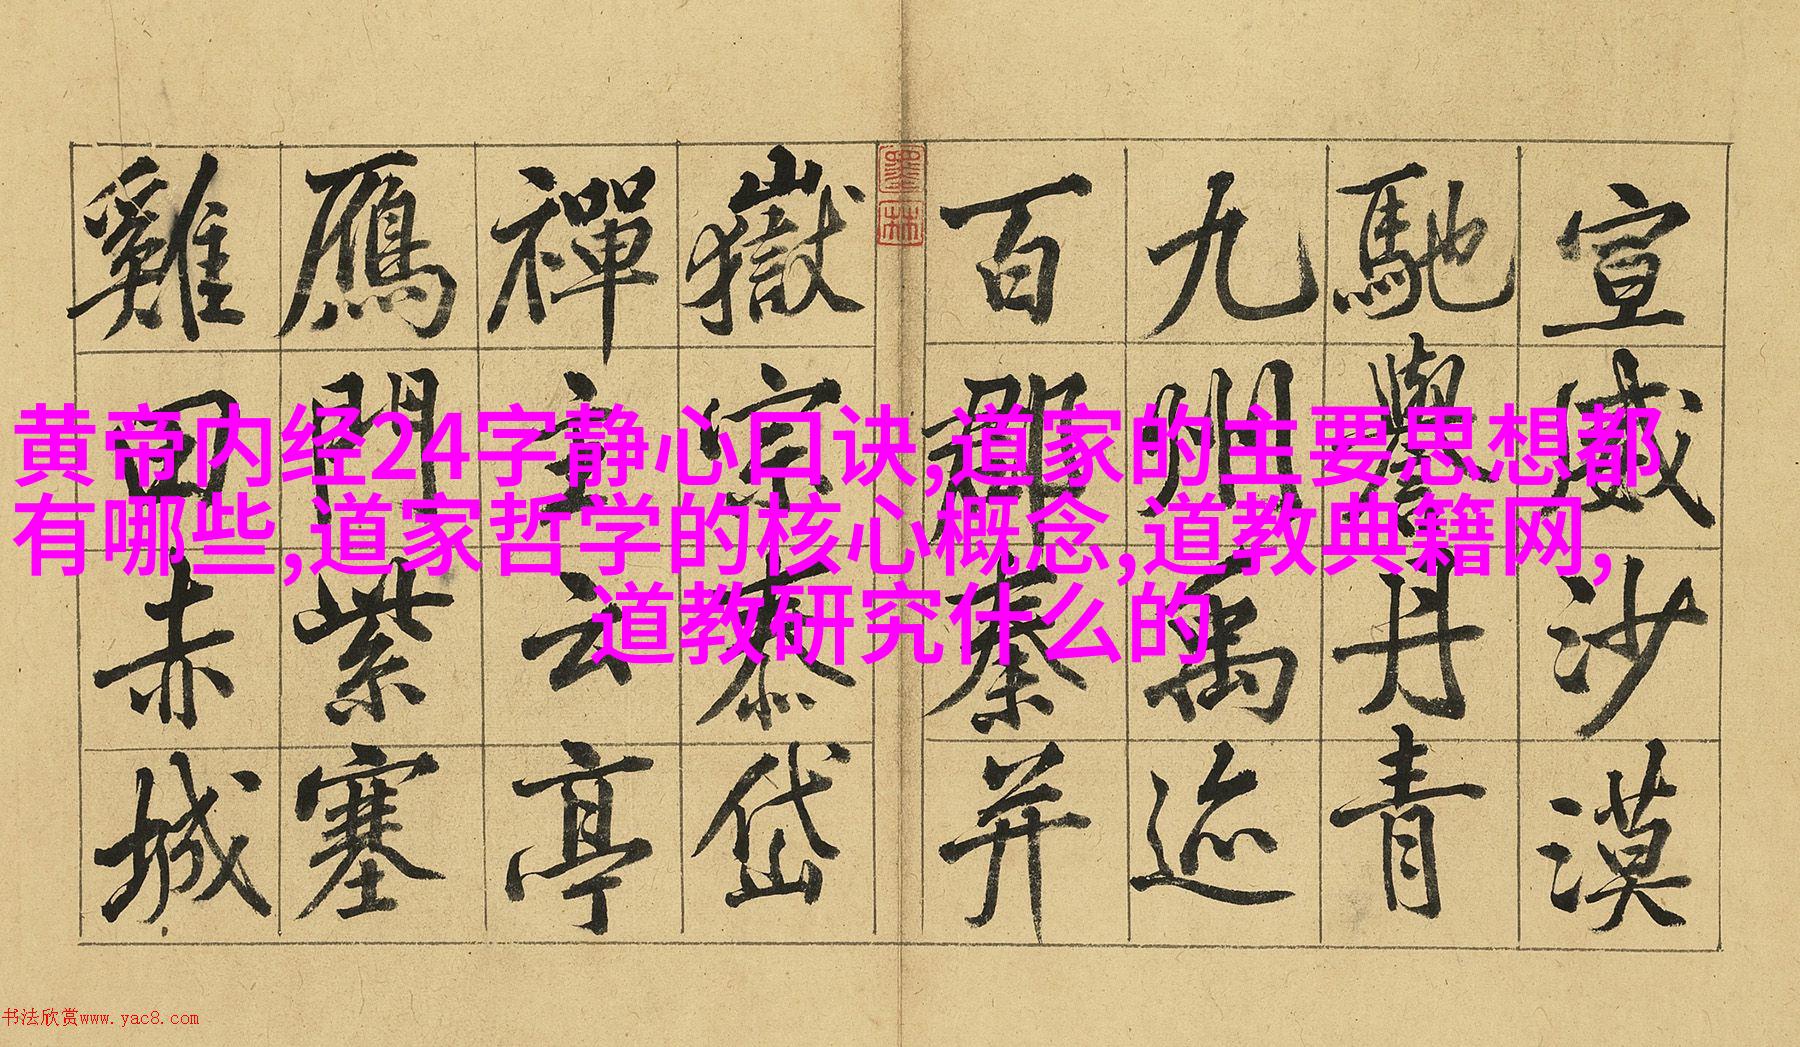 宣威沙漠
馳譽丹青
九州禹迹
百郡秦并
墨林
嶽宗泰岱
禪主云亭
鴈門紫塞
雞田赤城
黄帝内经24字静心口诀,道家的主要思想都
有哪些,道家哲学的核心概念,道教典籍网,
道教研究什么的
书法欣赏www.yac8.com